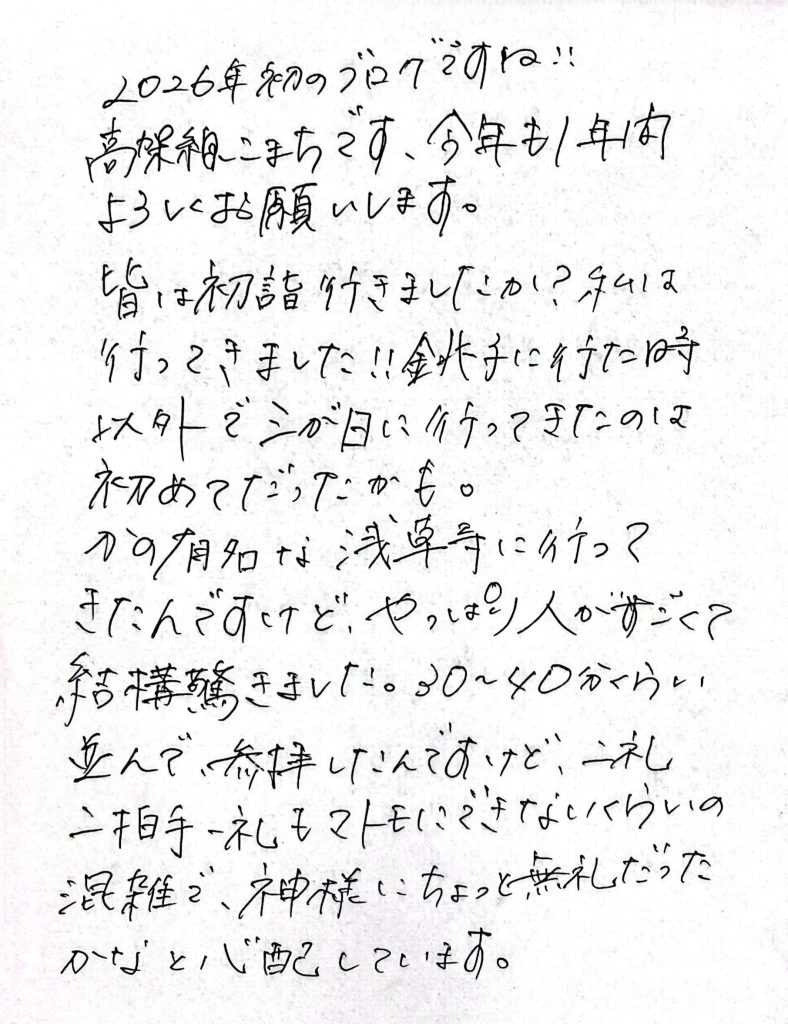 2026年初のブログですね!!
高架線こまちです、今年も1年間
よろしくお願いします。
皆は初詣行きましたか?私は
行ってきました!!銚子に行た時
以外で三が日に行ってきたのは
初めてだったかも。
かの有名な浅草寺に行って
きたんですけど、やっぱり人がすごくて
結構驚きました。30~40分くらい
並んで、参拝したんですけど、二礼
二拍手一礼もマトモにできないくらいの
混雑で、神様にちょっと無礼だった
かなと心配しています。